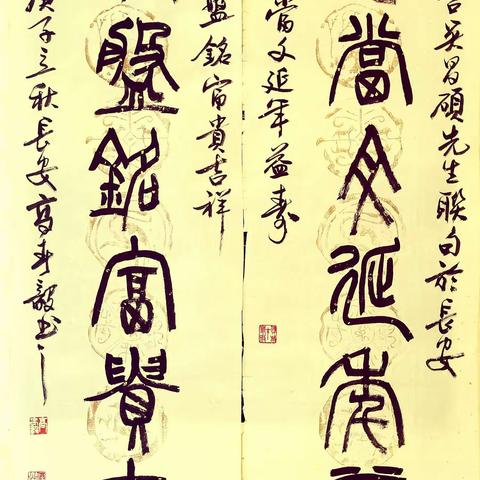 吴昌碩先生聯句於長安
當文延年
當文延年益壽
盤銘富貴吉祥
盤銘富貴
庚子立秋長安高毅書之